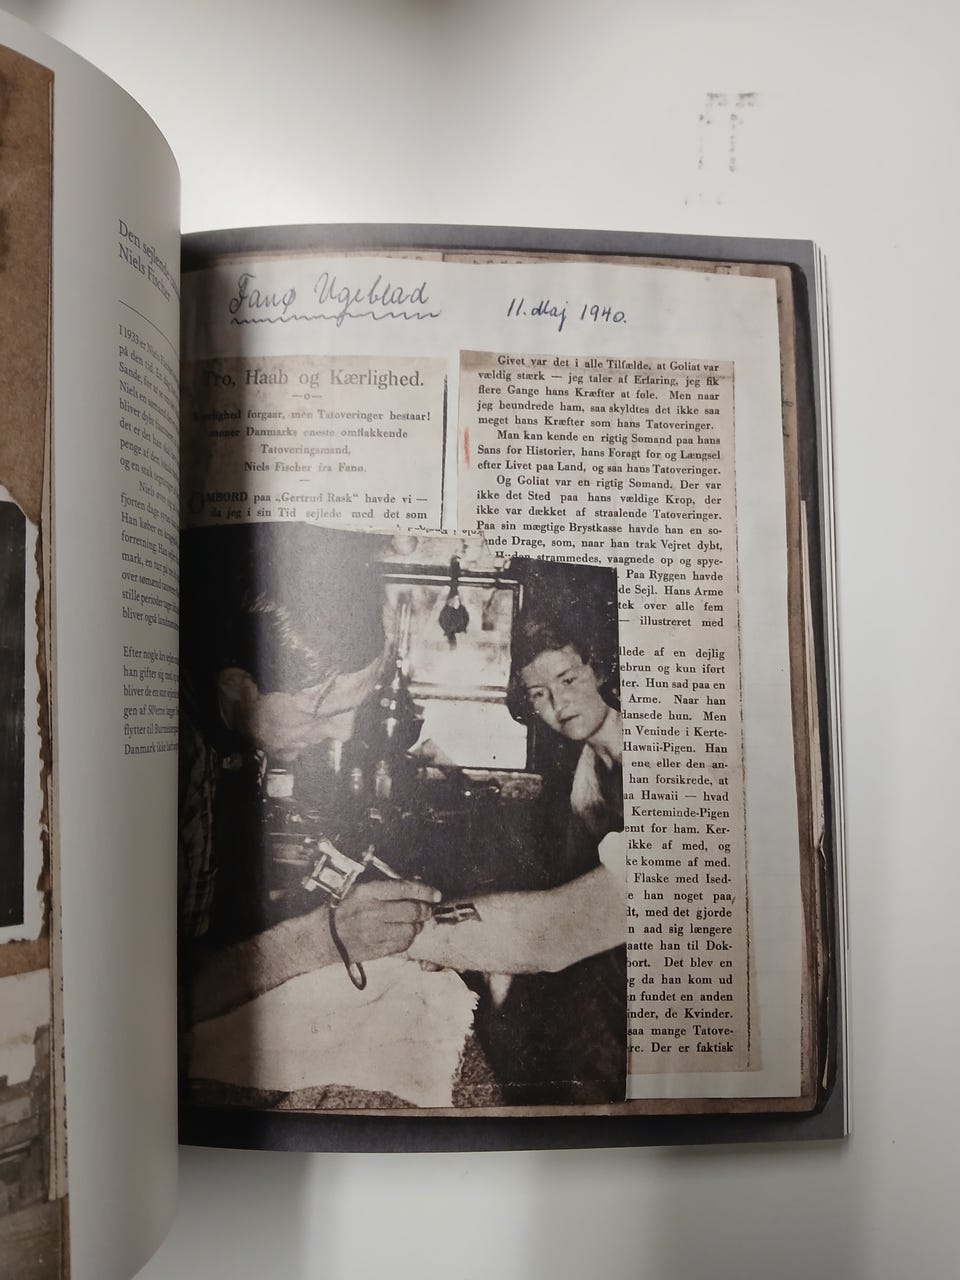 Den sejlende
Niels Fischer
I 1933 er Niels
på den tid. En dag
Sande, for at se
Niels en sømand
bliver dybt
det er det kan
penge af den lokale
og en stak tegninger
Niels øver sig
fjorten dage
Han køber en
forretning. Han sejler
mark, en tur på
over sømænd
stille perioder tager
bliver også
Efter nogle år
han gifter sig med
bliver de en
gen af 50'erne lægger
flytter til
Danmark ikke
Fanø Ugeblad
11. Maj 1940.
Tro, Haab og Kærlighed.
—o—
Kærlighed forgaar, men Tatoveringer bestaar!
mener Danmarks eneste omflakkende
Tatoveringsmand,
Niels Fischer fra Fanø.
OMBORD paa „Gertrud Rask“ havde vi —
da jeg i sin Tid sejlede med det som
Givet var det i alle Tilfælde, at Goliat var
vældig stærk — jeg taler af Erfaring, jeg fik
flere Gange hans Kræfter at føle. Men naar
jeg beundrede ham, saa skyldtes det ikke saa
meget hans Kræfter som hans Tatoveringer.
Man kan kende en rigtig Sømand paa hans
Sans for Historier, hans Foragt for og Længsel
efter Livet paa Land, og saa hans Tatoveringer.
Og Goliat var en rigtig Sømand. Der var
ikke det Sted paa hans vældige Krop, der
ikke var dækket af straalende Tatoveringer.
Paa sin mægtige Brystkasse havde han en so-
ende Drage, som, naar han trak Vejret dybt,
Huden strammedes, vaagnede op og spye-
. Paa Ryggen havde
de Sejl. Hans Arme
tek over alle fem
— illustreret med
llede af en dejlig
ebrun og kun iført
ter. Hun sad paa en
Arme. Naar han
dansede hun. Men
n Veninde i Kerte-
Hawaii-Pigen. Han
ene eller den an-
han forsikrede, at
aa Hawaii — hvad
Kerteminde-Pigen
emt for ham. Ker-
ikke af med, og
ke komme af med.
Flaske med Ised-
e han noget paa,
dt, med det gjorde
n aad sig længere
aatte han til Dok-
bort. Det blev en
g da han kom ud
n fundet en anden
inder, de Kvinder.
saa mange Tatove-
re. Der er faktisk